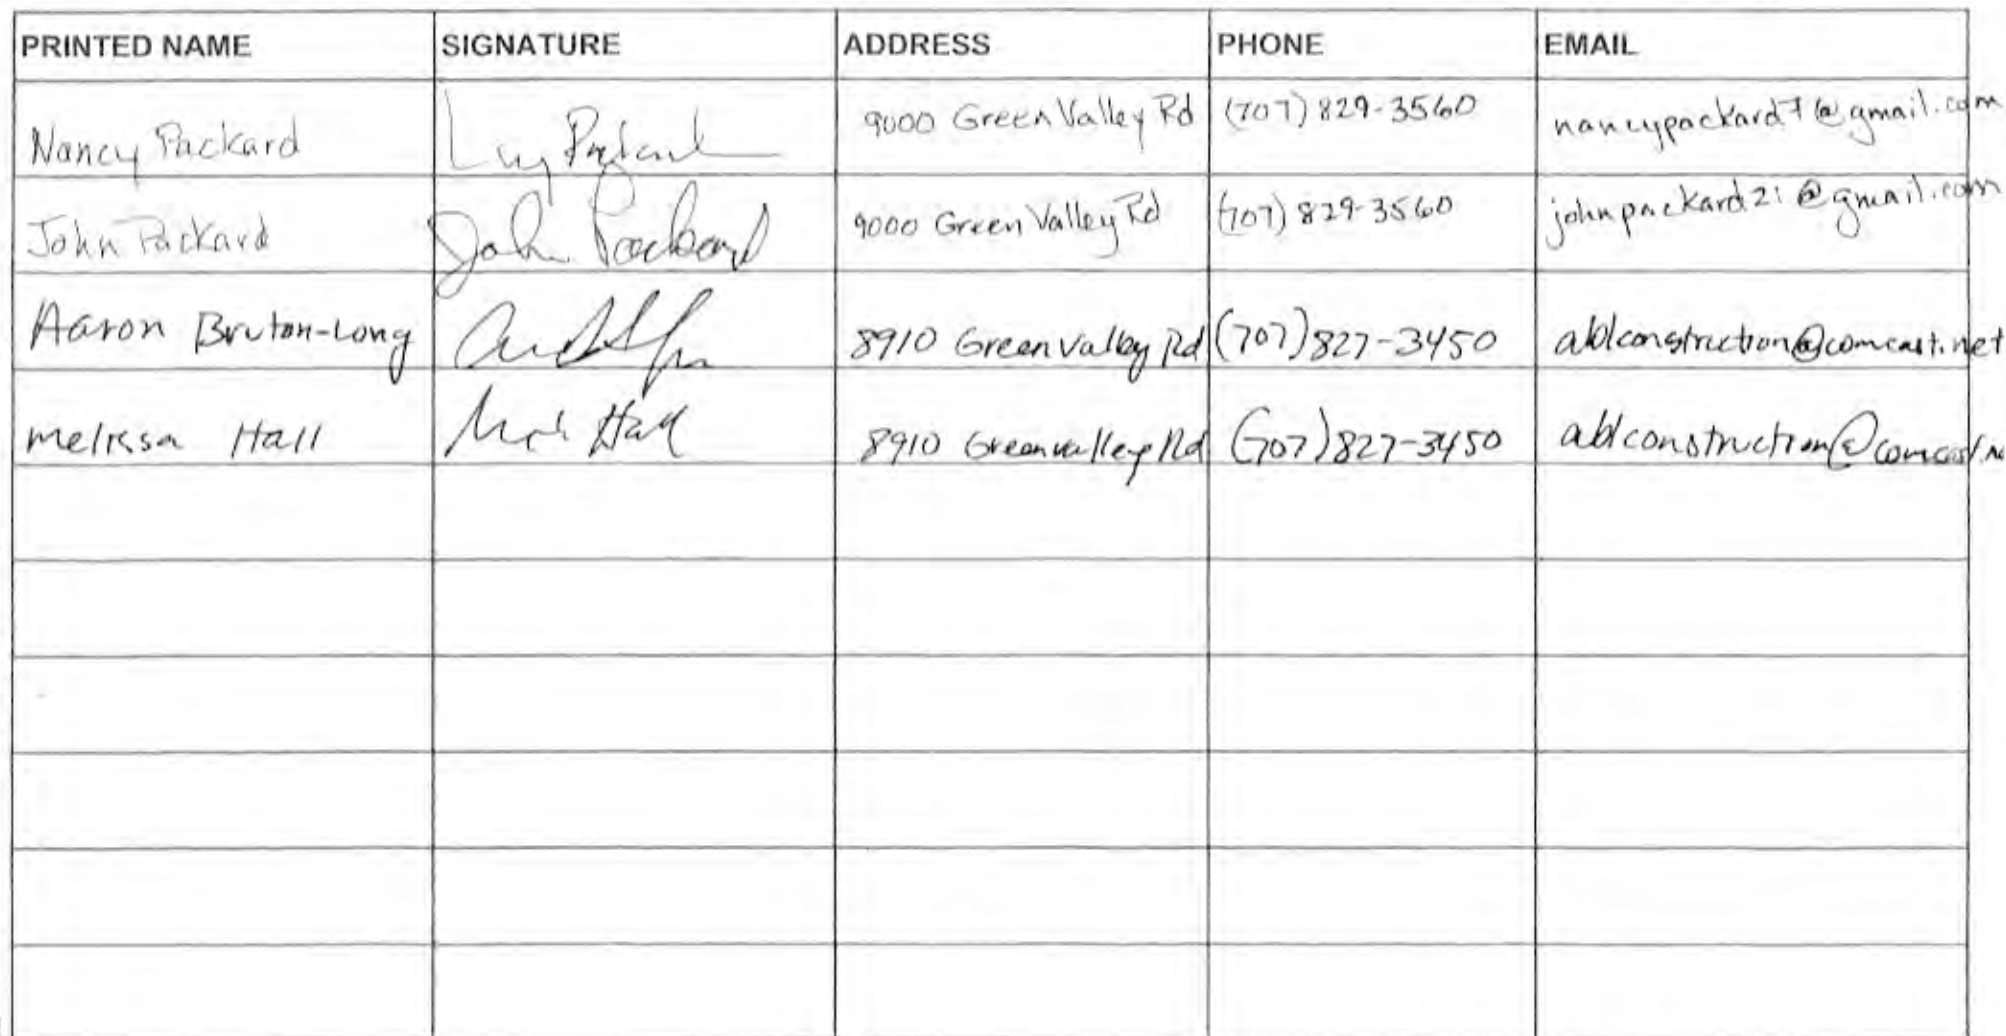 PRINTED NAME SIGNATURE ADDRESS PHONE EMAIL
Nancy Packard 9000 Green Valley Rd (707) 829-3560 nancypackard7@gmail.com
John Packard John Packard 9000 Green Valley Rd (707) 829-3560 johnpackard21@gmail.com
Aaron Bruton-Long 8910 Green Valley Rd (707) 827-3450 ablconstruction@comcast.net
Melissa Hall Hall 8910 Greenvalley Rd (707) 827-3450 ablconstruction@comcast.ne